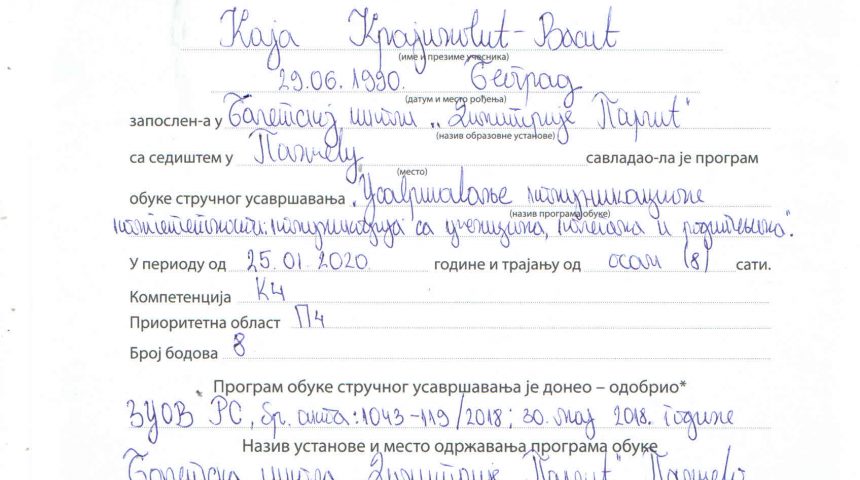 Каја Крајиновић-Васић
(име и презиме учесника)
29.06.1990. Београд
(датум и место рођења)
запослен-а у Балетској школи „Димитрије Парлић"
(назив образовне установе)
са седиштем у Панчеву савладао-ла је програм
(место)
обуке стручног усавршавања „Усавршавање комуникационе
(назив програма обуке)
компетентности: комуникација са ученицима, колегама и родитељима".
У периоду од 25.01.2020. године и трајању од осам (8) сати.
Компетенција К4
Приоритетна област П4
Број бодова 8
Програм обуке стручног усавршавања је донео – одобрио*
ЗУОВ РС, бр. акта: 1043-119/2018; 30. мај 2018. године
Назив установе и место одржавања програма обуке
Балетска школа „Димитрије Парлић" Панчево